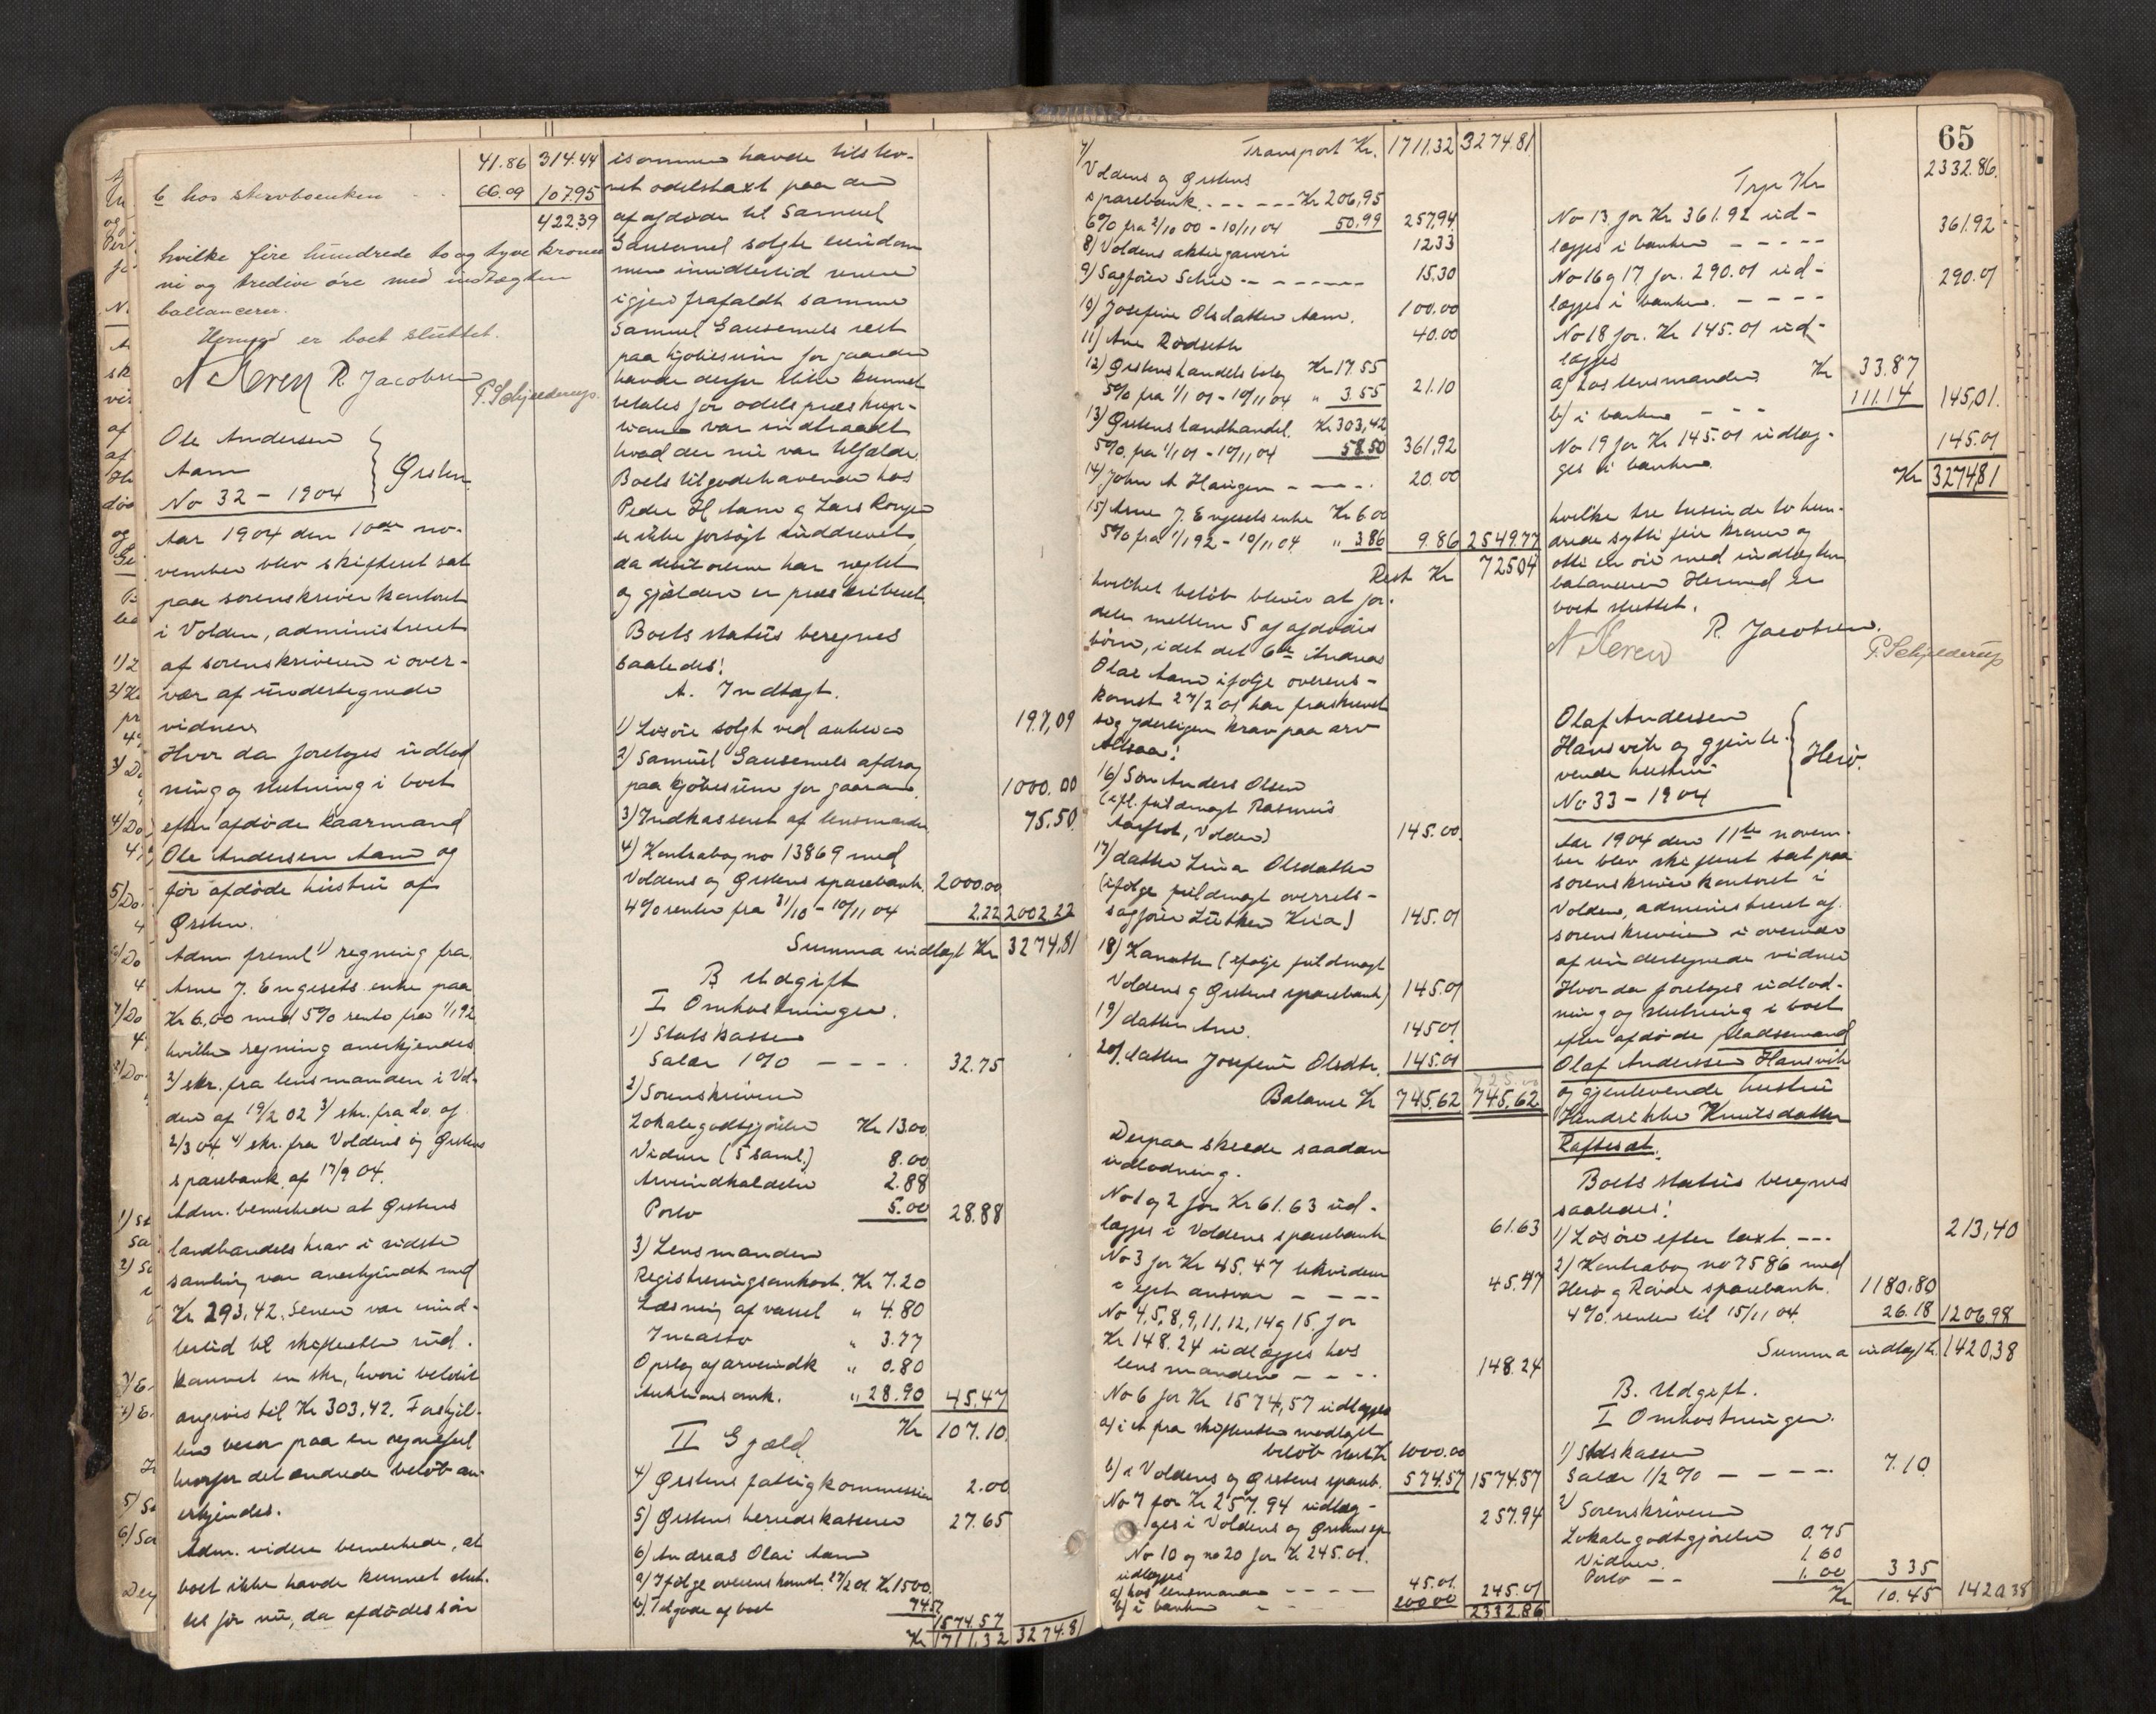 41.86 314.44
b hos skrivbænken 66.09 107.95
422.39
hvilke fire hundrede to og tyve kroner
ni og tredive øre med indtægten
ballancerer.
Hermed er boet sluttet.
R. Jacobsen
P. Schjelderup.
Ole Andersen
Aam
No 32 - 1904
Ørsten.
Aar 1904 den 10de no-
vember blev skifteret sat
paa sorenskriverkontoret
i Volden, administreret
af sorenskriveren i over-
vær af undertegnede
vidner
Hvor da foretoges udlod
ning og slutning i boet
efter afdøde kaarmand
Ole Andersen Aam og
før afdøde hustru af
Ørsten.
Adm freml 1) regning fra
Arne J. Engesets enke paa
Kr 6,00 med 5% rente fra 1/1 92
hvilken regning anerkjendes
2) skr. fra lensmanden i Vol-
den af 19/2 02 3) skr. fra do. af
2/3 04 4) skr. fra Voldens og Ørstens
sparebank af 17/9 04.
Adm. bemerkede at Ørstens
landhandels krav i sidste
samling var anerkjendt med
Kr 293,42. Senere var imid-
lertid til skifteretten ind-
kommet en skr, hvori beløbet
angives til Kr 303,42. Forskjel-
len beror paa en regnefeil
hvorfor det endrede beløb an-
erkjendes.
Adm. videre bemerkede, at
boet ikke havde kunnet slut-
tes før nu, da afdødes søn
isommer havde tilskre-
vet odelstaxt paa den
af afdøde til Samuel
Gausemel solgte eiendom
men imidlertid senere
igjen frafaldt samme
Samuel Gausemels rest
paa kjøbesum for gaarden
havde derfor ikke kunnet
betales før odelspræskrip-
tionen var indtraadt
hvad der nu var tilfælde.
Boets tilgodehavende hos
Peder H Aam og Lars
er ikke forsøgt inddrevet,
da debitorerne har negtet
og gjælden er præskriberet
Boets status beregnes
saaledes:
A. Indtægt.
1) Løsøre solgt ved auktion 197,09
2) Samuel Gausemels afdrag
paa kjøbesum for gaarden 1000.00
3) Indkasseret af lensmanden 75.50
4) Kontrabog no 13869 med
Voldens og Ørstens sparebank 2000.00
4% renter fra 31/10 - 10/11 04 2.22 2002.22
Summa indtægt Kr 3274,81
B Udgift
I Omkostninger.
1) Statskassen
Salær 1% - - - . 32.75
2) Sorenskriveren
Lokalegodtgjørelse Kr 13.00
Vidner (5 saml.) 8.00
Arveindkaldelse 2.88
Porto 5.00 28.88
3) Lensmanden
Registreringsomkost. Kr 7.20
Læsning af varsel " 4.80
Incasso " 3.77
Opslag af arveindk " 0.80
Auktionsomk. " 28.90 45,47
Kr 107.10.
II Gjæld
4) Ørstens fattigkommission 2.00
5) Ørstens herredskasserer 27.65
6) Andreas Olai Aam
a) Ifølge overenskomst 27/2 01 Kr 1500.
b) Tilgode af boet 74.57
1574.57
Kr 1711,32 3274.81
65
Transport Kr. 1711.32 3274.81
7)
Voldens og Ørstens
sparebank - - - - Kr 206,95
6% fra 2/10 00 - 10/11 04 50.99 257,94
8) Voldens aktiegarveri 12.33
9) Sagfører Schue - - - - - - 15.30
10) Josefine Olsdatter Aam. 100.00
11) Ane Rødseth 40.00
12) Ørstens handelsbolag Kr 17.55
5% fra 1/1 01 - 10/11 04 " 3.55 21.10
13) Ørstens landhandel. Kr 303,42
5% fra 1/1 01 - 10/11 04 58.50 361,92
14) John A Haugen - - - - 20.00
15) Arne J. Engesets enke Kr 6.00
5% fra 1/1 92 - 10/11 04 " 3.86 9.86 2549.77
Rest Kr 725.04
hvilket beløb bliver at for-
dele mellem 5 af afdødes
børn, idet det 6te Andreas
Olai Aam ifølge overens-
komst 27/2 01 har fraskrevet
sig yderligere krav paa arv
Altsaa:
16) Søn Anders Olsen
(ifl. fuldmagt Rasmus
Aarflot, Volden) 145.00
17) datter Lina Olsdatter
(ifølge fuldmagt overrets-
sagfører Lütken Kria) 145.01
18) Kanutte (ifølge fuldmagt
Voldens og Ørstens sparebank) 145.01
19) datter Ane. 145.01
20) datter Josefine Olsdtr. 145.01
Balance Kr 745,62 745,62
Derpaa skeede saadan
udlodning.
No 1 og 2 for Kr 61.63 ud-
lægges i Voldens sparebank 61.63
No 3 for Kr 45.47 likvideres
eget ansvar - - - - 45.47
No 4, 5, 8, 9, 11, 12, 14 og 15 for
Kr 148.24 udlægges hos
lensmanden - - - - 148.24
No 6 for Kr 1574,57 udlægges
a) i et fra skifteretten modtaget
beløb Kr 1000.00
b) i Voldens og Ørstens spareb. 574.57 1574.57
No 7 for Kr 257.94 udlæg-
ges i Voldens og Ørstens sp 257.94
No 10 og no 20 for Kr 245.01.
udlægges
a) hos lensmanden - - - - 45.01
b) i banken - - 200.00 245.01
2332.86
Trp Kr 2332.86.
No 13 for Kr 361.92 ud-
lægges i banken - - - - - 361.92
No 16 og 17 for 290.01 ud-
lægges i banken. - - - - 290.01
No 18 for Kr 145.01 ud-
lægges
a) hos lensmanden Kr 33.87
b) i banken - - - 111.14 145,01.
No 19 for Kr 145.01 udlæg-
ges i banken. 145.01
Kr 3274,81
hvilke tre tusinde to hun-
drede sytti fire kroner og
otti en øre med indtægten
balancerer Hermed er
boet sluttet.
R. Jacobsen.
P. Schjelderup
Olaf Andersen
Hansvik og gjenle-
vende hustru
No 33 - 1904
Herø.
Aar 1904 den 11te novem-
ber blev skifteret sat paa
sorenskriverkontoret i
Volden, administreret af
sorenskriveren i overvær
af undertegnede vidner
Hvor da foretoges udlod-
ning og slutning i boet
efter afdøde pladsemand
Olaf Andersen Hansvik
og gjenlevende hustru
Hendrikke Knutsdatter
Raftesæt.
Boets status beregnes
saaledes:
1) Løsøre efter taxt - - - 213,40
2) Kontrabog no 7586 med
Herø og Røvde sparebank. 1180.80
4% renter til 15/11 04. 26.18 1206,98
Summa indtægt Kr. 1420,38
B. Udgift.
I Omkostninger.
1) Statskassen
Salær 1/2% - - - - 7.10
2) Sorenskriveren
Lokalegodtgjørelse 0.75
Vidner. 1.60
Porto - - 1.00 3.35
Kr 10.45 1420.38